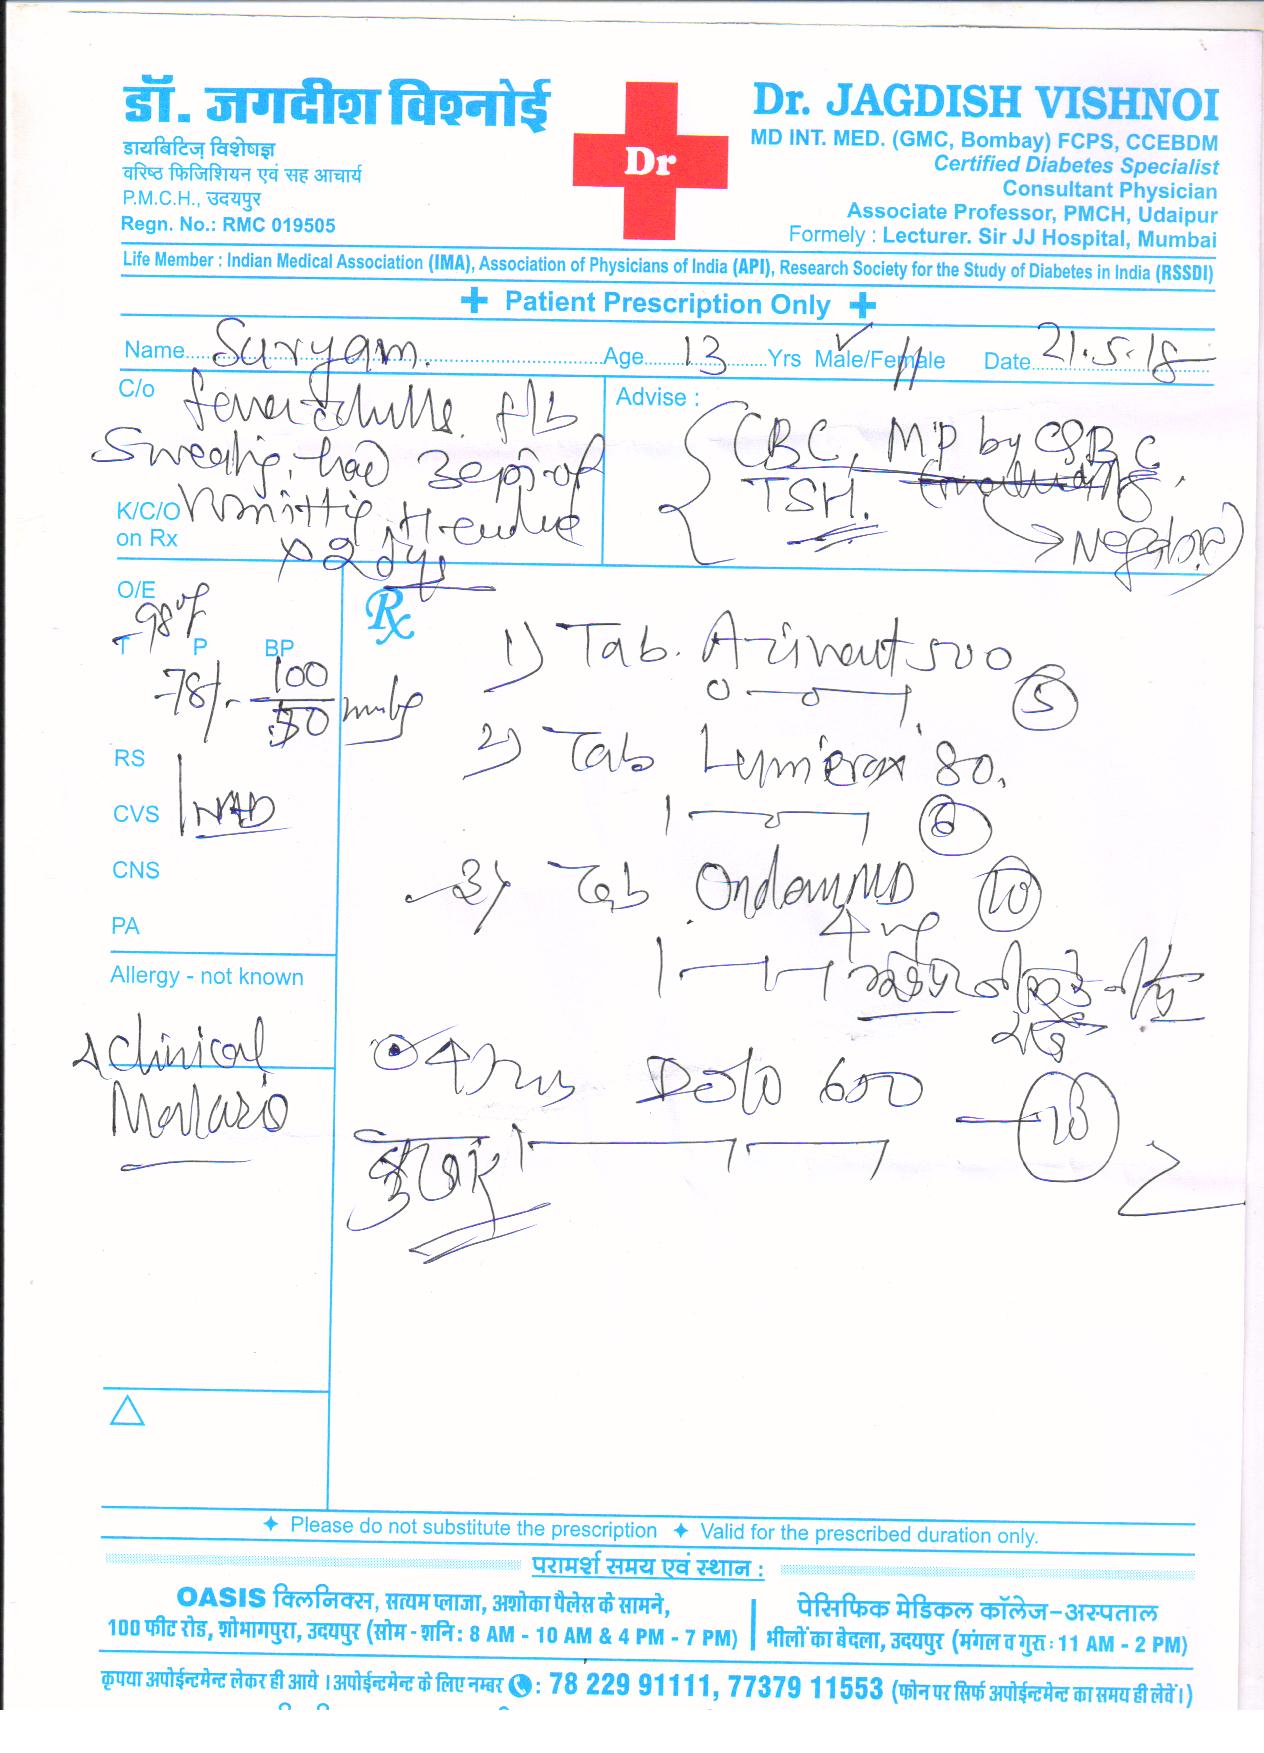 डॉ. जगदीश विश्नोई
डायबिटिज़ विशेषज्ञ
वरिष्ठ फिजिशियन एवं सह आचार्य
P.M.C.H., उदयपुर
Regn. No.: RMC 019505
Dr
Dr. JAGDISH VISHNOI
MD INT. MED. (GMC, Bombay) FCPS, CCEBDM
Certified Diabetes Specialist
Consultant Physician
Associate Professor, PMCH, Udaipur
Formely : Lecturer. Sir JJ Hospital, Mumbai
Life Member : Indian Medical Association (IMA), Association of Physicians of India (API), Research Society for the Study of Diabetes in India (RSSDI)
Patient Prescription Only
Name Suryam. Age 13 Yrs Male/Female Date 21.5.18
C/o fever
Sweating, had 3 epi of
K/C/O Vomitting
on Rx x 2 dys
Advise :
CBC, MP by
TSH.
Negative)
O/E
98°f
T P BP
78/- 100
50 mmhg
RS
CVS NAD
CNS
PA
Allergy - not known
Clinical
Malaria
Rx
1) Tab. 500
5
2) Tab Lumerax 80.
6
3) Tab MD 10
4 mg
Dolo 650
बुखार
Please do not substitute the prescription Valid for the prescribed duration only.
परामर्श समय एवं स्थान :
OASIS क्लिनिक्स, सत्यम प्लाजा, अशोका पैलेस के सामने,
100 फीट रोड, शोभागपुरा, उदयपुर (सोम - शनि : 8 AM - 10 AM & 4 PM - 7 PM)
पेसिफिक मेडिकल कॉलेज-अस्पताल
भीलों का बेदला, उदयपुर (मंगल व गुरु : 11 AM - 2 PM)
कृपया अपोईन्टमेन्ट लेकर ही आये । अपोईन्टमेन्ट के लिए नम्बर : 78 229 91111, 77379 11553 (फोन पर सिर्फ अपोईन्टमेन्ट का समय ही लेवें।)